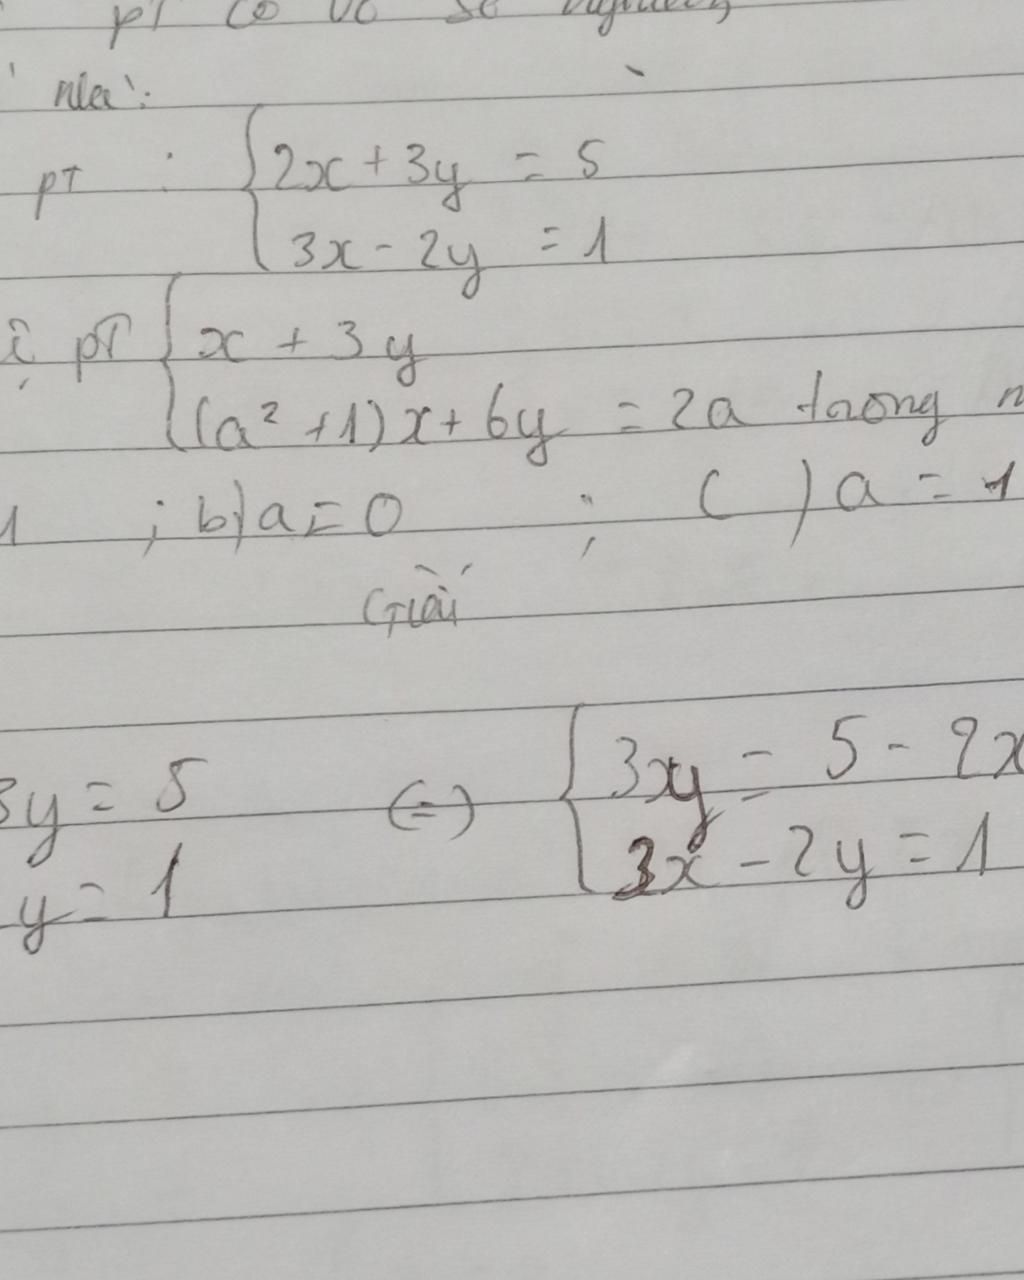 pT có vô số nghiệm
nhà:
pT : { 2x + 3y = 5
3x - 2y = 1
pT { x + 3y
(a² + 1)x + 6y = 2a trong
1 ; b) a = 0 ; c) a = 1
Giải
3y = 5 (=) { 3xy = 5 - 2x
y = 1 3x - 2y = 1